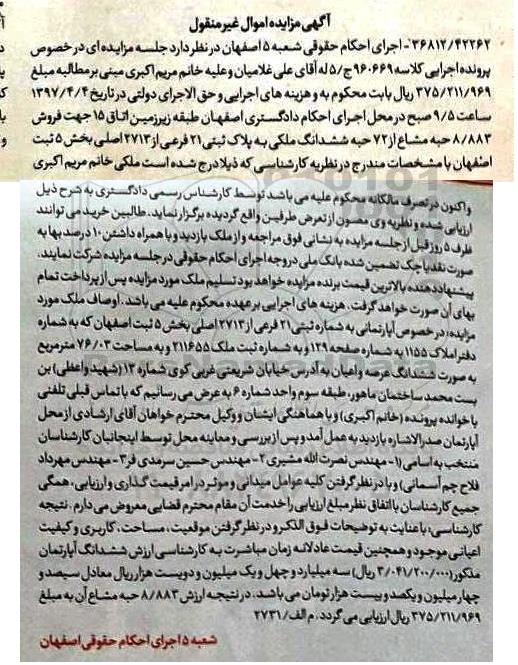 آگهی مزایده اموال غیر منقول
۳۶۸۱۲/۴۲۲۶۲- اجرای احکام حقوقی شعبه ۵ اصفهان در نظر دارد جلسه مزایده ای در خصوص
پرونده اجرایی کلاسه ۹۶۰۶۶۹ ج/۵ له آقای علی غلامیان و علیه خانم مریم اکبری مبنی بر مطالبه مبلغ
۳۷۵/۲۱۱/۹۶۹ ریال بابت محکوم به و هزینه های اجرایی و حق الاجرای دولتی در تاریخ ۱۳۹۷/۴/۴
ساعت ۹/۵ صبح در محل اجرای احکام دادگستری اصفهان طبقه زیرزمین اتاق ۱۵ جهت فروش
۸/۸۸۳ حبه مشاع از ۷۲ حبه ششدانگ ملکی به پلاک ثبتی ۲۱ فرعی از ۲۷۱۳ اصلی بخش ۵ ثبت
اصفهان با مشخصات مندرج در نظریه کارشناسی که ذیلا درج شده است ملکی خانم مریم اکبری
و اکنون در تصرف مالکانه محکوم علیه می باشد توسط کارشناس رسمی دادگستری به شرح ذیل
ارزیابی شده و نظریه وی مصون از تعرض طرفین واقع گردیده برگزار نماید. طالبین خرید می توانند
ظرف ۵ روز قبل از جلسه مزایده به نشانی فوق مراجعه و از ملک بازدید و با همراه داشتن ۱۰ درصد بها به
صورت نقد یا چک تضمین شده بانک ملی در وجه اجرای احکام حقوقی در جلسه مزایده شرکت نمایند.
پیشنهاددهنده بالاترین قیمت برنده مزایده خواهد بود تسلیم ملک مورد مزایده پس از پرداخت تمام
بهای آن صورت خواهد گرفت. هزینه های اجرایی بر عهده محکوم علیه می باشد. اوصاف ملک مورد
مزایده: در خصوص آپارتمانی به شماره ثبتی ۲۱ فرعی از ۲۷۱۳ اصلی بخش ۵ ثبت اصفهان که به شماره
دفتر املاک ۱۱۵۵ به شماره صفحه ۱۲۹ و به شماره ثبت ملک ۲۱۱۶۵۵ و به مساحت ۷۶/۰۳ مترمربع
به صورت ششدانگ عرصه و اعیان به آدرس خیابان شریعتی غربی کوی شماره ۱۳ (شهید واعظی) بن
بست محمد ساختمان ماهور، طبقه سوم واحد شماره ۶ به عرض می رسانیم که با تماس قبلی تلفنی
با خوانده پرونده (خانم اکبری) و با هماهنگی ایشان و وکیل محترم خواهان آقای ارشادی از محل
آپارتمان صدرالاشاره بازدید به عمل آمد و پس از بررسی و معاینه محل توسط اینجانبان کارشناسان
منتخب به اسامی (۱- مهندس نصرت الله مشیری ۲- مهندس حسین سرمدی فر ۳- مهندس مهرداد
فلاح چم آسمانی) و با در نظر گرفتن کلیه عوامل میدانی و موثر در امر قیمت گذاری و ارزیابی، همگی
جمیع کارشناسان با اتفاق نظر مبلغ ارزیابی را خدمت آن مقام محترم قضایی معروض می دارم. نتیجه
کارشناسی: با عنایت به توضیحات فوق الذکر و در نظر گرفتن موقعیت، مساحت، کاربری و کیفیت
اعیانی موجود و همچنین قیمت عادلانه زمان مباشرت به کارشناسی ارزش ششدانگ آپارتمان
مذکور (۳/۰۴۱/۲۰۰/۰۰۰ ریال) سه میلیارد و چهل و یک میلیون و دویست هزار ریال معادل سیصد و
چهار میلیون و یکصد و بیست هزار تومان می باشد. در نتیجه ارزش ۸/۸۸۳ حبه مشاع آن به مبلغ
۳۷۵/۲۱۱/۹۶۹ ریال ارزیابی می گردد. م الف/ ۲۷۳۱
شعبه ۵ اجرای احکام حقوقی اصفهان